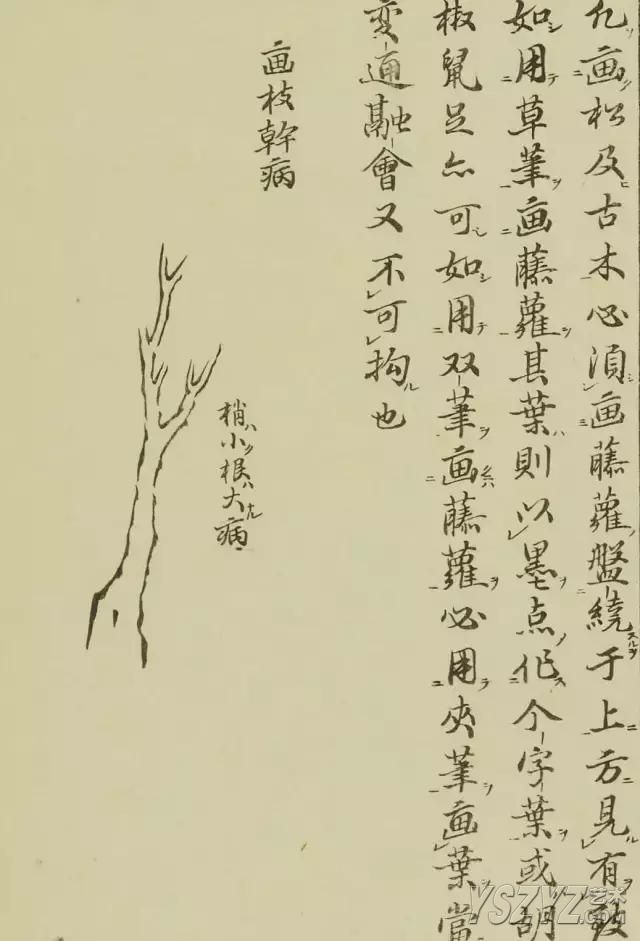 凢画松及古木必須画藤蘿盤繞于上方見有致
如用草筆画藤蘿其葉則以墨点作个字葉或胡
椒鼠足亦可如用双筆画藤蘿必用夾筆画葉當
変通融會又不可拘也
画枝幹病
梢小根大病
YSZYZ艺术